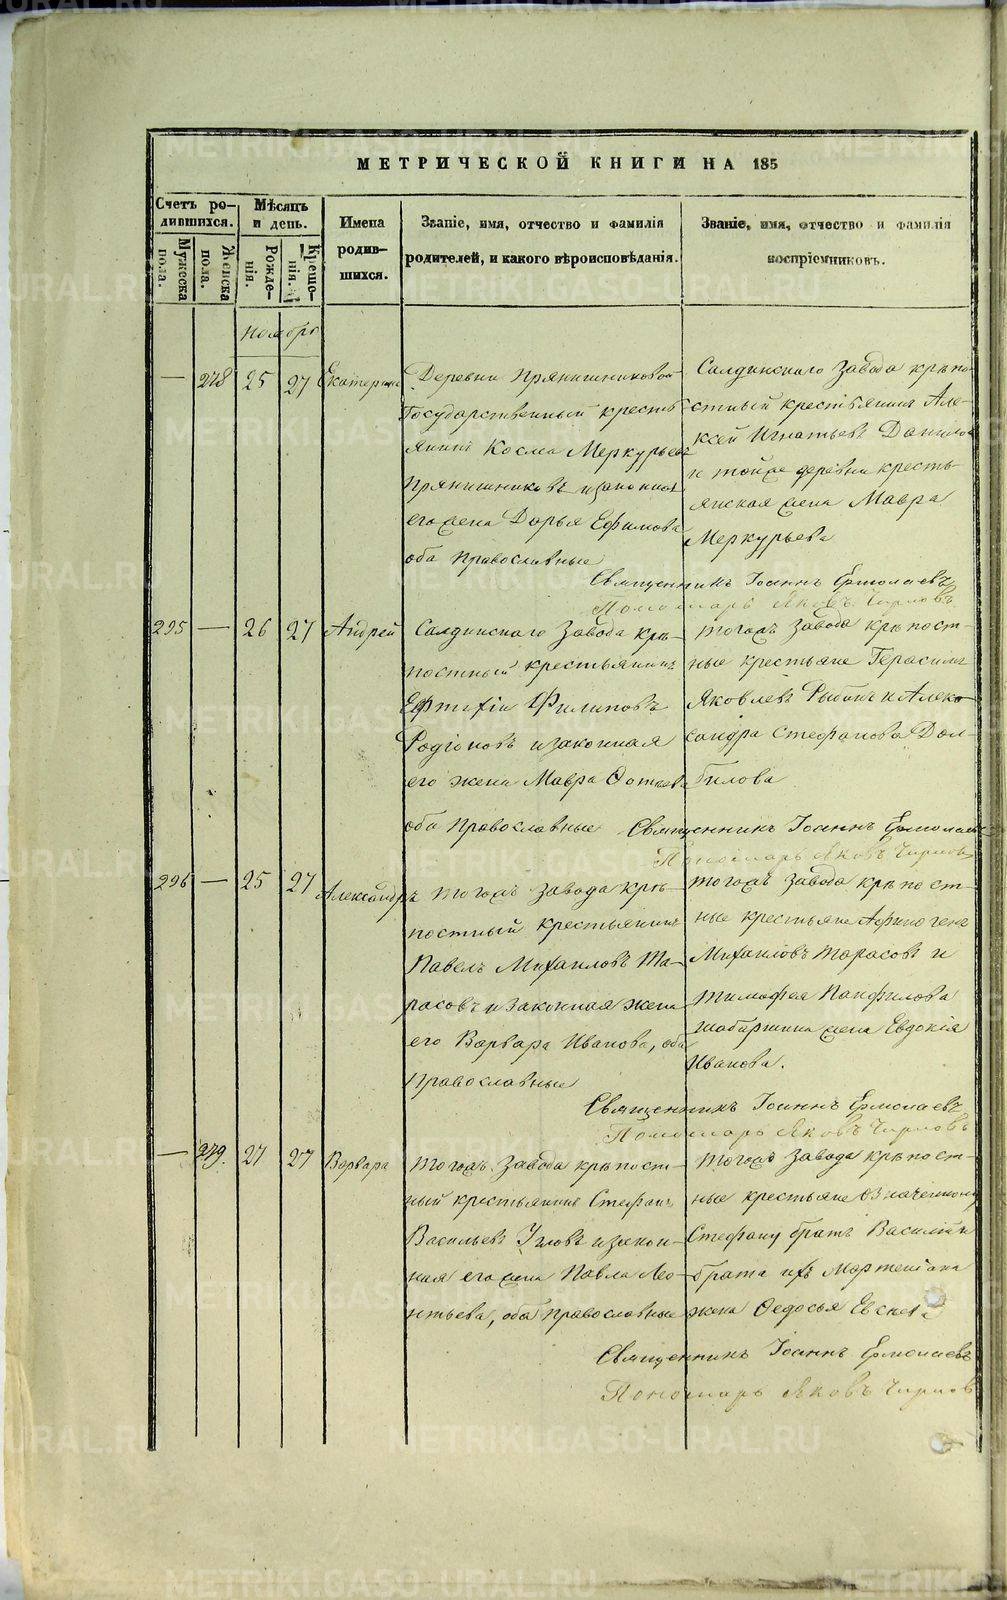 МЕТРИЧЕСКОЙ КНИГИ НА 185
Счетъ ро-
дившихся.
Мужеска
пола.
Женска
пола.
Мѣсяцъ
и день.
Рожде-
нія.
Креще-
нія.
Имена
родив-
шихся.
Званіе, имя, отчество и фамилія
родителей, и какого вѣроисповѣданія.
Званіе, имя, отчество и фамилія
воспріемниковъ.
Ноябрь
— 278 25 27 Екатерина
Деревни Прянишниковой
Государственный кресть-
янинъ Косма Меркурьевъ
Прянишниковъ и законная
его жена Дарья Ефимова
оба Православные
Салдинскаго завода крѣпо-
стный крестьянинъ Але-
ксей Игнатьевъ Данилов
и тойже деревни кресть-
янская жена Мавра
Меркурьева
Священникъ Іоаннъ Ермолаевъ
Пономарь Яковъ Чирковъ
295 — 26 27 Андрей
Салдинскаго Завода крѣ-
постный крестьянинъ
Евтихій Филиповъ
Родіоновъ и законная
его жена Мавра Фотиева
оба Православные
тогожъ завода крѣпост-
ные крестьяне Герасимъ
Яковлевъ Рыбинъ и Алек-
сандра Стефанова Дол-
билова
Священникъ Іоаннъ Ермолаевъ
Пономарь Яковъ Чирковъ
296 — 25 27 Александръ
тогожъ завода крѣ-
постный крестьянинъ
Павелъ Михаиловъ Та-
расовъ и законная жена
его Варвара Иванова, оба
Православные
тогожъ завода крѣпост-
ные крестьяне Афиногенъ
Михаиловъ Тарасовъ и
Тимофея Панфилова
жена Евдокія
Иванова.
Священникъ Іоаннъ Ермолаевъ
Пономарь Яковъ Чирковъ
— 279. 27 27 Варвара
тогожъ завода крѣпост-
ный крестьянинъ Стефанъ
Васильевъ Угловъ и закон-
ная его жена Павла Лео-
нтьева, оба Православные
тогожъ завода крѣпост-
ные крестьяне означенному
Стефану братъ Василій и
брата ихъ Мартеміана
жена Ѳедосья
Священникъ Іоаннъ Ермолаевъ
Пономарь Яковъ Чирков
METRIKI.GASO-URAL.RU